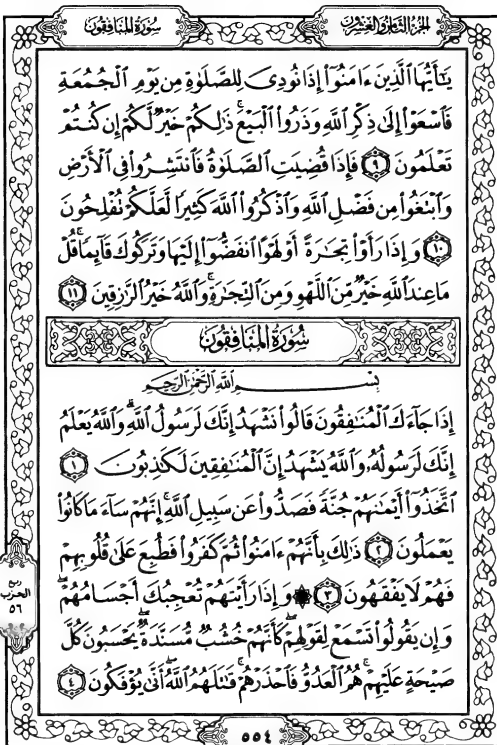 سُورَةُ المُنَافِقُون
الجُزءُ الثَّامِنُ وَالعِشْرُون
يَٰٓأَيُّهَا ٱلَّذِينَ ءَامَنُوٓاْ إِذَا نُودِيَ لِلصَّلَوٰةِ مِن يَوْمِ ٱلْجُمُعَةِ
فَٱسْعَوْاْ إِلَىٰ ذِكْرِ ٱللَّهِ وَذَرُواْ ٱلْبَيْعَ ۚ ذَٰلِكُمْ خَيْرٌ لَّكُمْ إِن كُنتُمْ
تَعْلَمُونَ ٩ فَإِذَا قُضِيَتِ ٱلصَّلَوٰةُ فَٱنتَشِرُواْ فِي ٱلْأَرْضِ
وَٱبْتَغُواْ مِن فَضْلِ ٱللَّهِ وَٱذْكُرُواْ ٱللَّهَ كَثِيرًا لَّعَلَّكُمْ تُفْلِحُونَ
١٠ وَإِذَا رَأَوْاْ تِجَٰرَةً أَوْ لَهْوًا ٱنفَضُّوٓاْ إِلَيْهَا وَتَرَكُوكَ قَآئِمًا ۚ قُلْ
مَا عِندَ ٱللَّهِ خَيْرٌ مِّنَ ٱللَّهْوِ وَمِنَ ٱلتِّجَٰرَةِ ۚ وَٱللَّهُ خَيْرُ ٱلرَّٰزِقِينَ ١١
سُورَةُ المُنَافِقُون
بِسْمِ ٱللَّهِ ٱلرَّحْمَٰنِ ٱلرَّحِيمِ
إِذَا جَآءَكَ ٱلْمُنَٰفِقُونَ قَالُواْ نَشْهَدُ إِنَّكَ لَرَسُولُ ٱللَّهِ ۗ وَٱللَّهُ يَعْلَمُ
إِنَّكَ لَرَسُولُهُۥ وَٱللَّهُ يَشْهَدُ إِنَّ ٱلْمُنَٰفِقِينَ لَكَٰذِبُونَ ١
ٱتَّخَذُوٓاْ أَيْمَٰنَهُمْ جُنَّةً فَصَدُّواْ عَن سَبِيلِ ٱللَّهِ ۚ إِنَّهُمْ سَآءَ مَا كَانُواْ
يَعْمَلُونَ ٢ ذَٰلِكَ بِأَنَّهُمْ ءَامَنُواْ ثُمَّ كَفَرُواْ فَطُبِعَ عَلَىٰ قُلُوبِهِمْ
فَهُمْ لَا يَفْقَهُونَ ٣ ۞ وَإِذَا رَأَيْتَهُمْ تُعْجِبُكَ أَجْسَامُهُمْ ۖ
وَإِن يَقُولُواْ تَسْمَعْ لِقَوْلِهِمْ ۖ كَأَنَّهُمْ خُشُبٌ مُّسَنَّدَةٌ ۖ يَحْسَبُونَ كُلَّ
صَيْحَةٍ عَلَيْهِمْ ۚ هُمُ ٱلْعَدُوُّ فَٱحْذَرْهُمْ ۚ قَٰتَلَهُمُ ٱللَّهُ ۖ أَنَّىٰ يُؤْفَكُونَ ٤
ربع
الحزب
٥٦
٥٥٤